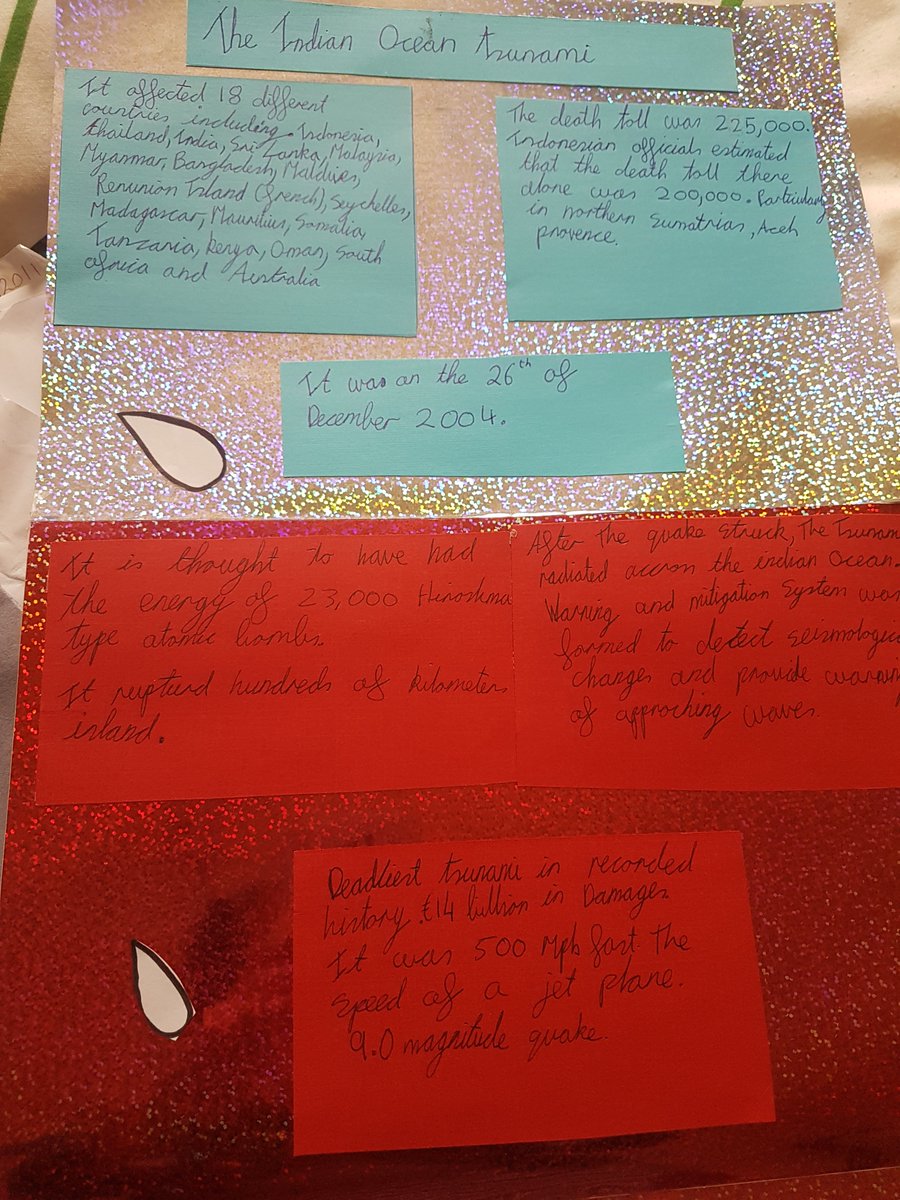 The Indian Ocean tsunami
It affected 18 different
countries including. Indonesia,
thailand, India, Sri Lanka, Malaysia,
Myanmar, Bangladesh, Maldives,
Renunion Island (french), Seychelles,
Madagascar, Mauritius, Somalia,
Tanzania, Kenya, Oman, South
africa and Australia
The death toll was 225,000.
Indonesian officials estimated
that the death toll there
alone was 200,000. Particulary
in northern Sumatrias, Aceh
provence.
It was on the 26th of
December 2004.
It is thought to have had
the energy of 23,000 Hiroshima
type atomic bombs.
It rupturd hundreds of kilometers
inland.
After the quake struck, The Tsunami
radiated across the indian Ocean.
Warning and mitigation System was
formed to detect seismologic
changes and provide
of approching waves.
Deadliest tsunami in recorded
history. £14 billion in Damages.
It was 500 Mph fast the
speed of a jet plane.
9.0 magnitude quake.
2011